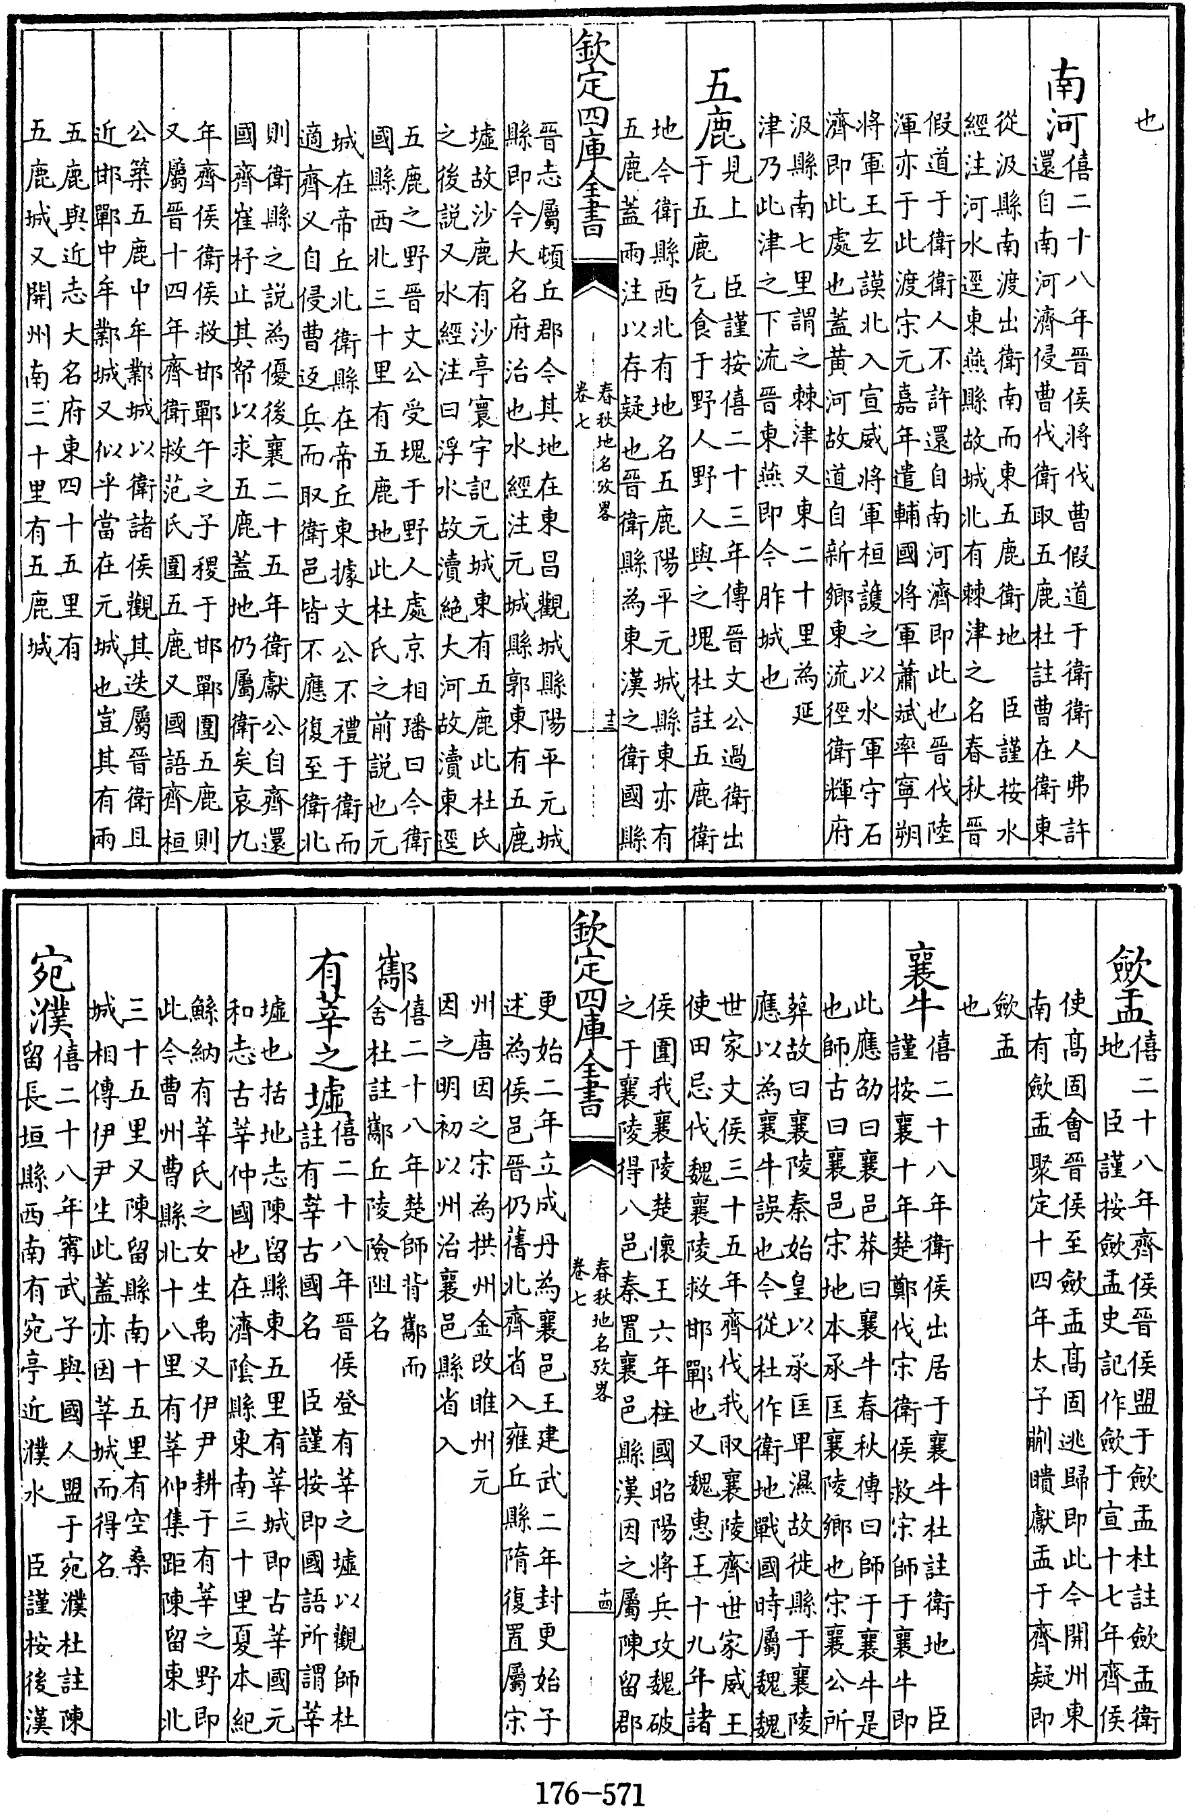 也
南河僖二十八年晉侯將伐曹假道于衛衛人弗許
還自南河濟侵曹伐衛取五鹿杜註曹在衛東
從汲縣南渡出衛南而東五鹿衛地　臣謹按水
經注河水逕東燕縣故城北有棘津之名春秋晉
假道于衛衛人不許還自南河濟即此也晉伐陸
渾亦于此渡宋元嘉年遣輔國將軍蕭斌率寧朔
將軍王玄謨北入宣威將軍桓護之以水軍守石
濟即此處也蓋黃河故道自新鄉東流徑衛輝府
汲縣南七里謂之棘津又東二十里為延
津乃此津之下流晉東燕即今胙城也
五鹿見上　臣謹按僖二十三年傳晉文公過衛出
于五鹿乞食于野人野人與之塊杜註五鹿衛
地今衛縣西北有地名五鹿陽平元城縣東亦有
五鹿蓋兩注以存疑也晉衛縣為東漢之衛國縣
欽定四庫全書
春秋地名攷畧
卷七
十三
晉志屬頓丘郡今其地在東昌觀城縣陽平元城
縣即今大名府治也水經注元城縣郭東有五鹿
墟故沙鹿有沙亭寰宇記元城東有五鹿此杜氏
之後説又水經注曰浮水故瀆絶大河故瀆東逕
五鹿之野晉文公受塊于野人處京相璠曰今衛
國縣西北三十里有五鹿地此杜氏之前説也元
城在帝丘北衛縣在帝丘東據文公不禮于衛而
適齊又自侵曹返兵而取衛邑皆不應復至衛北
則衛縣之説為優後襄二十五年衛獻公自齊還
國齊崔杼止其帑以求五鹿蓋地仍屬衛矣哀九
年齊侯衛侯救邯鄲午之子稷于邯鄲圍五鹿則
又屬晉十四年齊衛救范氏圍五鹿又國語齊桓
公築五鹿中牟鄴城以衛諸侯觀其迭屬晉衛且
近邯鄲中牟鄴城又似乎當在元城也豈其有兩
五鹿與近志大名府東四十五里有
五鹿城又開州南三十里有五鹿城
歛盂僖二十八年齊侯晉侯盟于歛盂杜註歛盂衛
地　臣謹按歛盂史記作歛于宣十七年齊侯
使髙固會晉侯至歛盂髙固逃歸即此今開州東
南有歛盂聚定十四年太子蒯聵獻盂于齊疑即
歛盂
也
襄牛僖二十八年衛侯出居于襄牛杜註衛地　臣
謹按襄十年楚鄭伐宋衛侯救宋師于襄牛即
此應劭曰襄邑莽曰襄牛春秋傳曰師于襄牛是
也師古曰襄邑宋地本承匡襄陵鄉也宋襄公所
葬故曰襄陵秦始皇以承匡卑濕故徙縣于襄陵
應以為襄牛誤也今從杜作衛地戰國時屬魏魏
世家文侯三十五年齊伐我取襄陵齊世家威王
使田忌伐魏襄陵救邯鄲也又魏惠王十九年諸
侯圍我襄陵楚懷王六年柱國昭陽將兵攻魏破
之于襄陵得八邑秦置襄邑縣漢因之屬陳留郡
欽定四庫全書
春秋地名攷畧
卷七
十四
更始二年立成丹為襄邑王建武二年封更始子
述為侯邑晉仍舊北齊省入雍丘縣隋復置屬宋
州唐因之宋為拱州金改睢州元
因之明初以州治襄邑縣省入
酅僖二十八年楚師背酅而
舍杜註酅丘陵險阻名
有莘之墟僖二十八年晉侯登有莘之墟以觀師杜
註有莘古國名　臣謹按即國語所謂莘
墟也括地志陳留縣東五里有莘城即古莘國元
和志古莘仲國也在濟隂縣東南三十里夏本紀
鯀納有莘氏之女生禹又伊尹耕于有莘之野即
此今曹州曹縣北十八里有莘仲集距陳留東北
三十五里又陳留縣南十五里有空桑
城相傳伊尹生此蓋亦因莘城而得名
宛濮僖二十八年甯武子與國人盟于宛濮杜註陳
留長垣縣西南有宛亭近濮水　臣謹按後漢
176-571